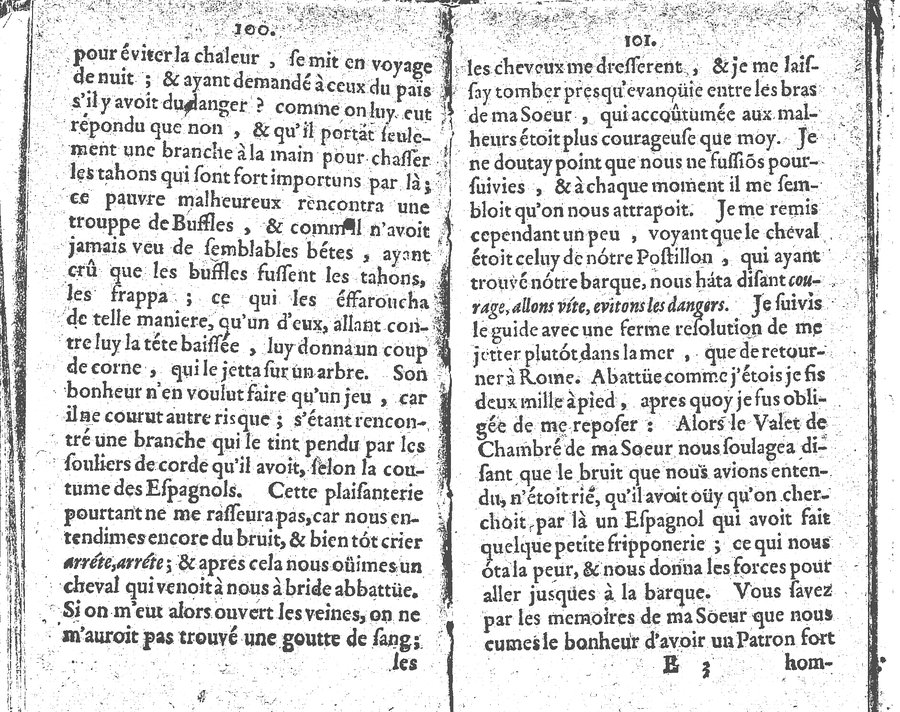 100.
pour éviter la chaleur , se mit en voyage
de nuit ; & ayant demandé à ceux du païs
s'il y avoit du danger ? comme on luy eut
répondu que non , & qu'il portât seule-
ment une branche à la main pour chasser
les tahons qui sont fort importuns par là;
ce pauvre malheureux rencontra une
trouppe de Buffles , & comme il n'avoit
jamais veu de semblables bétes , ayant
crû que les buffles fussent les tahons,
les frappa ; ce qui les éffaroucha
de telle maniere, qu'un d'eux, allant con-
tre luy la téte baissée , luy donna un coup
de corne , qui le jetta sur un arbre. Son
bonheur n'en voulut faire qu'un jeu , car
il ne courut autre risque ; s'étant rencon-
tré une branche qui le tint pendu par les
souliers de corde qu'il avoit, selon la cou-
tume des Espagnols. Cette plaisanterie
pourtant ne me rasseura pas, car nous en-
tendimes encore du bruit, & bien tót crier
arréte, arréte ; & apres cela nous oüimes un
cheval qui venoit à nous à bride abbattüe.
Si on m'eut alors ouvert les veines, on ne
m'auroit pas trouvé une goutte de sang;
les
101.
les cheveux me dresserent , & je me lais-
say tomber presqu'evanoüie entre les bras
de ma Soeur , qui accoûtumée aux mal-
heurs étoit plus courageuse que moy. Je
ne doutay point que nous ne fussiõs pour-
suivies , & à chaque moment il me sem-
bloit qu'on nous attrapoit. Je me remis
cependant un peu , voyant que le cheval
étoit celuy de nótre Postillon , qui ayant
trouvé nótre barque, nous háta disant cou-
rage, allons víte, evitons les dangers. Je suivis
le guide avec une ferme resolution de me
jetter plutót dans la mer , que de retour-
ner à Rome. Abattüe comme j'étois je fis
deux mille à pied , apres quoy je fus obli-
gée de me reposer : Alors le Valet de
Chambré de ma Soeur nous soulagea di-
sant que le bruit que nous avions enten-
du, n'étoit rié, qu'il avoit oüy qu'on cher-
choit par là un Espagnol qui avoit fait
quelque petite fripponerie ; ce qui nous
óta la peur, & nous donna les forces pour
aller jusques à la barque. Vous savez
par les memoires de ma Soeur que nous
eumes le bonheur d'avoir un Patron fort
E 3 hom-